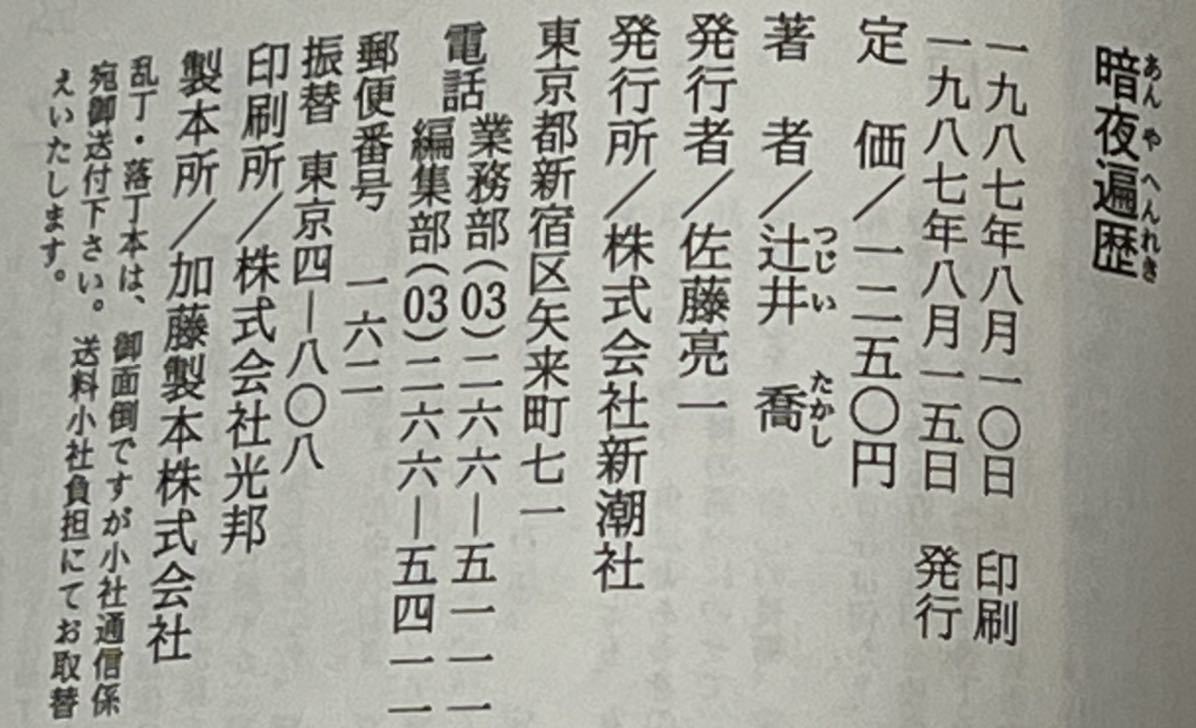 暗夜遍歴
あんやへんれき
一九八七年八月一〇日 印刷
一九八七年八月一五日 発行
定 価/一二五〇円
著 者/辻井 喬
つじい たかし
発行者/佐藤亮一
発行所/株式会社新潮社
東京都新宿区矢来町七一
電話 業務部(03)二六六―五一一一
編集部(03)二六六―五四一一
郵便番号 一六二
振替 東京四―八〇八
印刷所/株式会社光邦
製本所/加藤製本株式会社
乱丁・落丁本は、御面倒ですが小社通信係
宛御送付下さい。送料小社負担にてお取替
えいたします。